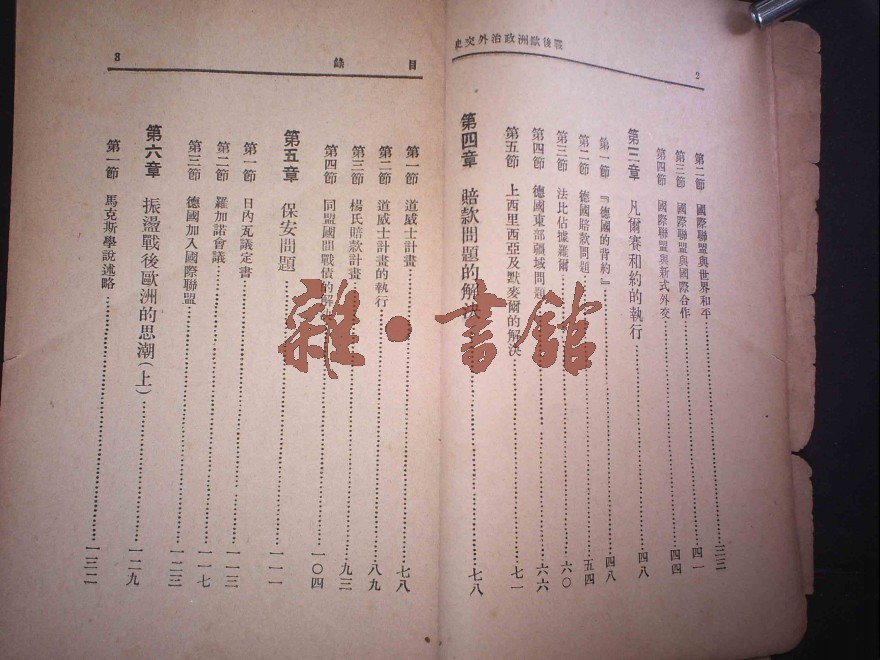 戰後歐洲政治外交史
2
第二節 國際聯盟與世界和平……三三
第三節 國際聯盟與國際合作……四一
第四節 國際聯盟與新式外交……四四
第三章 凡爾賽和約的執行……四八
第一節 『德國的背約』……四八
第二節 德國賠款問題……五四
第三節 法比佔據羅爾……六〇
第四節 德國東部疆域問題……六六
第五節 上西里西亞及默麥爾的解決……七一
第四章 賠款問題的解決……七八
目錄
3
第一節 道威士計畫……七八
第二節 道威士計畫的執行……八九
第三節 楊氏賠款計畫……九三
第四節 同盟國間戰債的解決……一〇四
第五章 保安問題……一一一
第一節 日內瓦議定書……一一三
第二節 羅加諾會議……一一七
第三節 德國加入國際聯盟……一二三
第六章 振盪戰後歐洲的思潮（上）……一二九
第一節 馬克斯學說述略……一三二
雜·書館